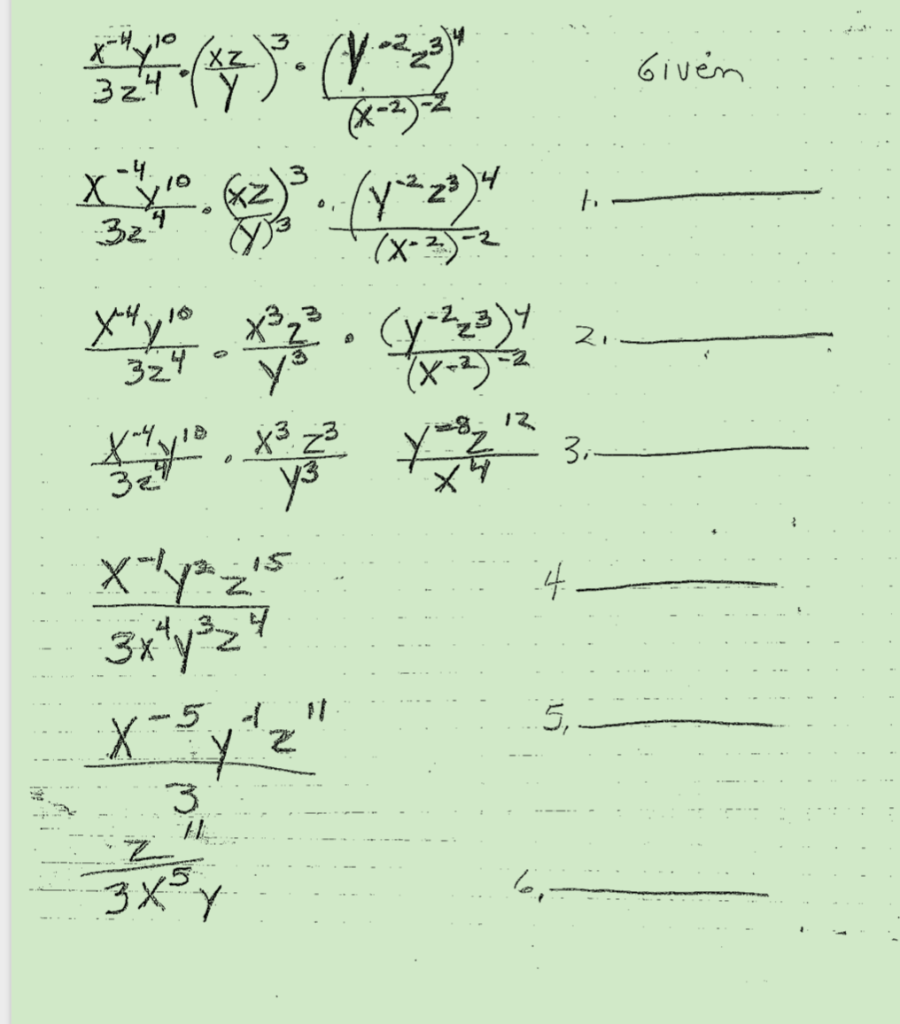 x⁻⁴y¹⁰/3z⁴ · (xz/y)³ · (y⁻²z³)⁴/(x⁻²)⁻² Given
x⁻⁴y¹⁰/3z⁴ · (xz)³/(y)³ · (y⁻²z³)⁴/(x⁻²)⁻² 1. ________
x⁻⁴y¹⁰/3z⁴ · x³z³/y³ · (y⁻²z³)⁴/(x⁻²)⁻² 2. ________
x⁻⁴y¹⁰/3z⁴ · x³z³/y³ y⁻⁸z¹²/x⁴ 3. ________
x⁻¹y²z¹⁵/3x⁴y³z⁴ 4 ________
x⁻⁵y⁻¹z¹¹/3 5. ________
z¹¹/3x⁵y 6. ________